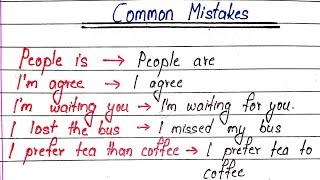 Common Mistakes
People is → People are
I'm agree → I agree
I'm waiting you → I'm waiting for you.
I lost the bus → I missed my bus
I prefer tea than coffee → I prefer tea to
coffee